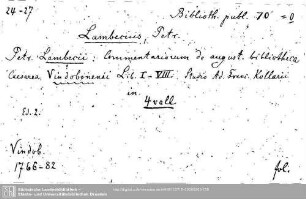 24-27
Biblioth. publ. 70 = 0
Lambecius, Petr.
Petr. Lambecii: Commentariorum de august. bibliotheca
Caesarea Vindobonensi Lib. I-VIII. Studio Ad. Franc. Kollarii
in 4 voll.
Ed. 2.
Vindob.
1766-82
fol.